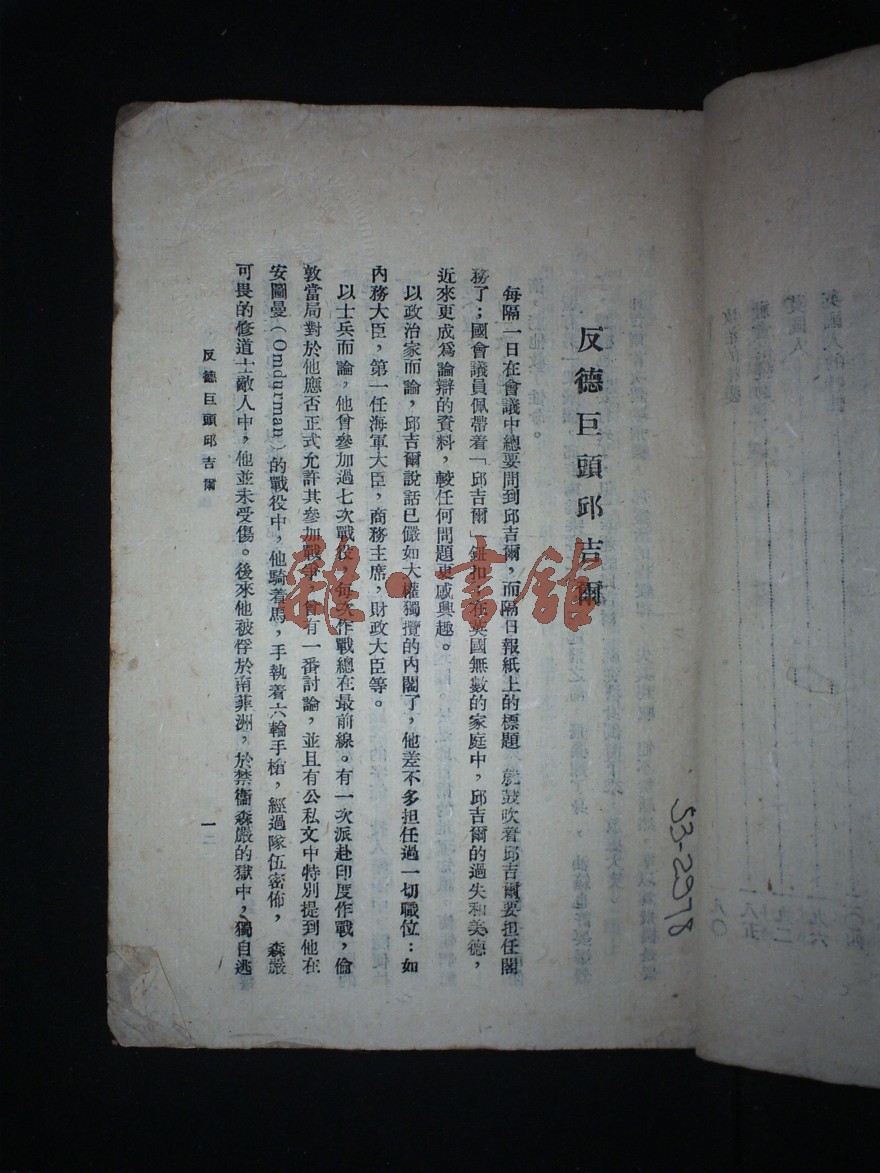 反德巨頭邱吉爾
每隔一日在會議中總要聞到邱吉爾，而隔日報紙上的標題 就鼓吹着邱吉爾要担任閣
務了；國會議員佩帶着「邱吉爾」鈕扣，在英國無數的家庭中，邱吉爾的過失和美德，
近來更成爲論辯的資料，較任何問題更感興趣。
以政治家而論，邱吉爾說話已儼如大權獨攬的內閣了，他差不多担任過一切職位：如
內務大臣，第一任海軍大臣，商務主席，財政大臣等。
以士兵而論，他曾參加過七次戰役，每次作戰總在最前線。有一次派赴印度作戰，倫
敦當局對於他應否正式允許其參加戰爭，曾有一番討論，並且有公私文中特別提到他在
安圖曼（Omdurman）的戰役中，他騎着馬，手執着六輪手槍，經過隊伍密佈， 森嚴
可畏的修道士敵人中，他並未受傷。後來他被俘於南菲洲，於禁衞森嚴的獄中，獨自逃
反德巨頭邱吉爾
一
53-2978
雜·書館
英國人
一九六
一九二
一八五
八〇